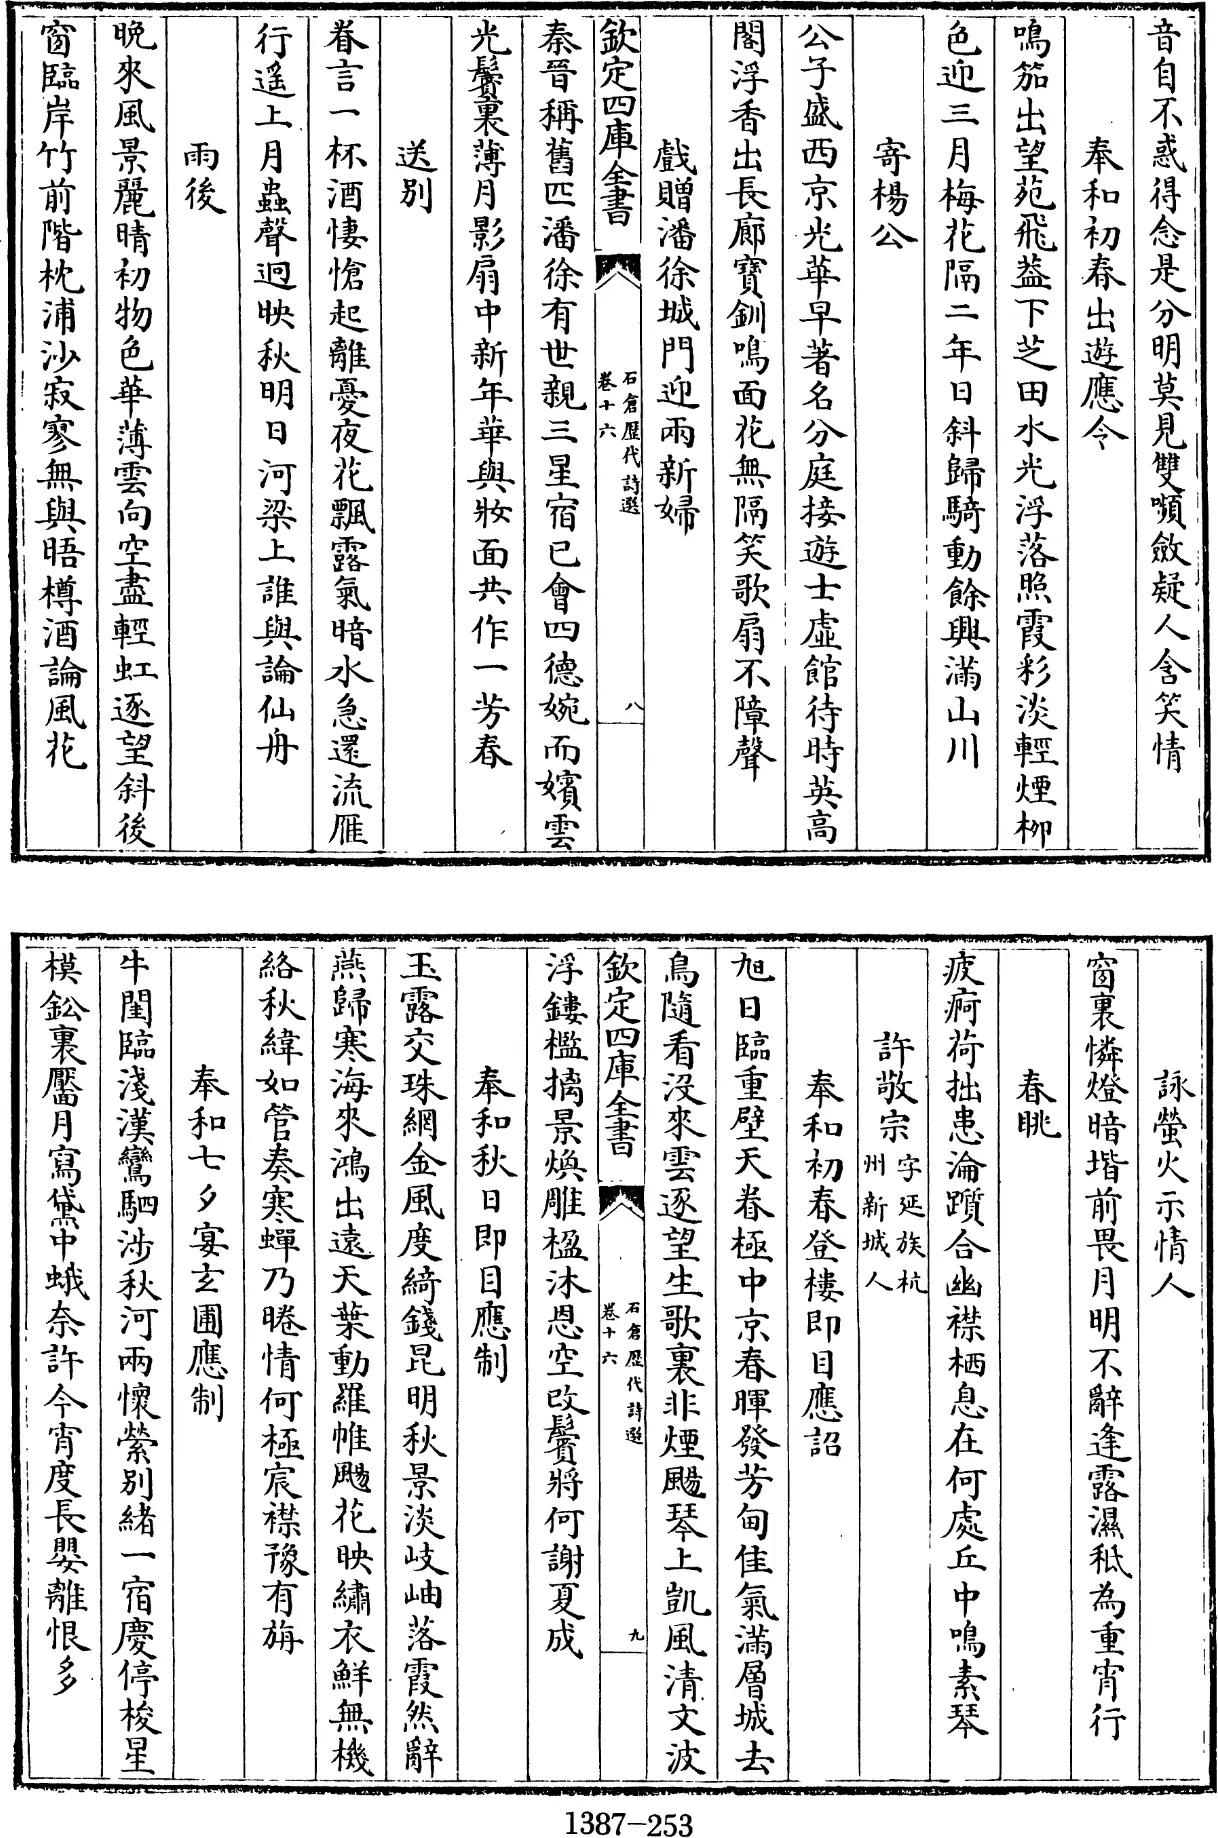 音自不惑得念是分明莫見雙嚬斂疑人含笑情
奉和初春出遊應令
鳴笳出望苑飛葢下芝田水光浮落照霞彩淡輕煙柳
色迎三月梅花隔二年日斜歸騎動餘興滿山川
寄楊公
公子盛西京光華早著名分庭接遊士虛館待時英高
閣浮香出長廊寶釧鳴面花無隔笑歌扇不障聲
戲贈潘徐城門迎兩新婦
欽定四庫全書
石倉歷代詩選
卷十六
八
秦晉稱舊匹潘徐有世親三星宿已會四德婉而嬪雲
光鬢裏薄月影扇中新年華與妝面共作一芳春
送別
眷言一杯酒悽愴起離憂夜花飄露氣暗水急還流雁
行遥上月蟲聲迥映秋明日河梁上誰與論仙舟
雨後
晩來風景麗晴初物色華薄雲向空盡輕虹逐望斜後
窗臨岸竹前階枕浦沙寂寥無與晤樽酒論風花
詠螢火示情人
窗裏憐燈暗堦前畏月明不辭逢露濕秪為重宵行
春眺
疲痾荷拙患淪躓合幽襟栖息在何處丘中鳴素琴
許敬宗
字延族杭
州新城人
奉和初春登樓即目應詔
旭日臨重壁天眷極中京春暉發芳甸佳氣滿層城去
鳥隨看没來雲逐望生歌裏非煙颺琴上凱風清文波
欽定四庫全書
石倉歷代詩選
卷十六
九
浮鏤檻摛景煥雕楹沐恩空改鬢將何謝夏成
奉和秋日即目應制
玉露交珠網金風度綺錢昆明秋景淡岐岫落霞然辭
燕歸寒海來鴻出遠天葉動羅帷颺花映繡衣鮮無機
絡秋緯如管奏寒蟬乃睠情何極宸襟豫有旃
奉和七夕宴玄圃應制
牛閨臨淺漢鸞駟涉秋河兩懷縈別緒一宿慶停梭星
模鈆裏靨月寫黛中蛾奈許今宵度長嬰離恨多
1387-253